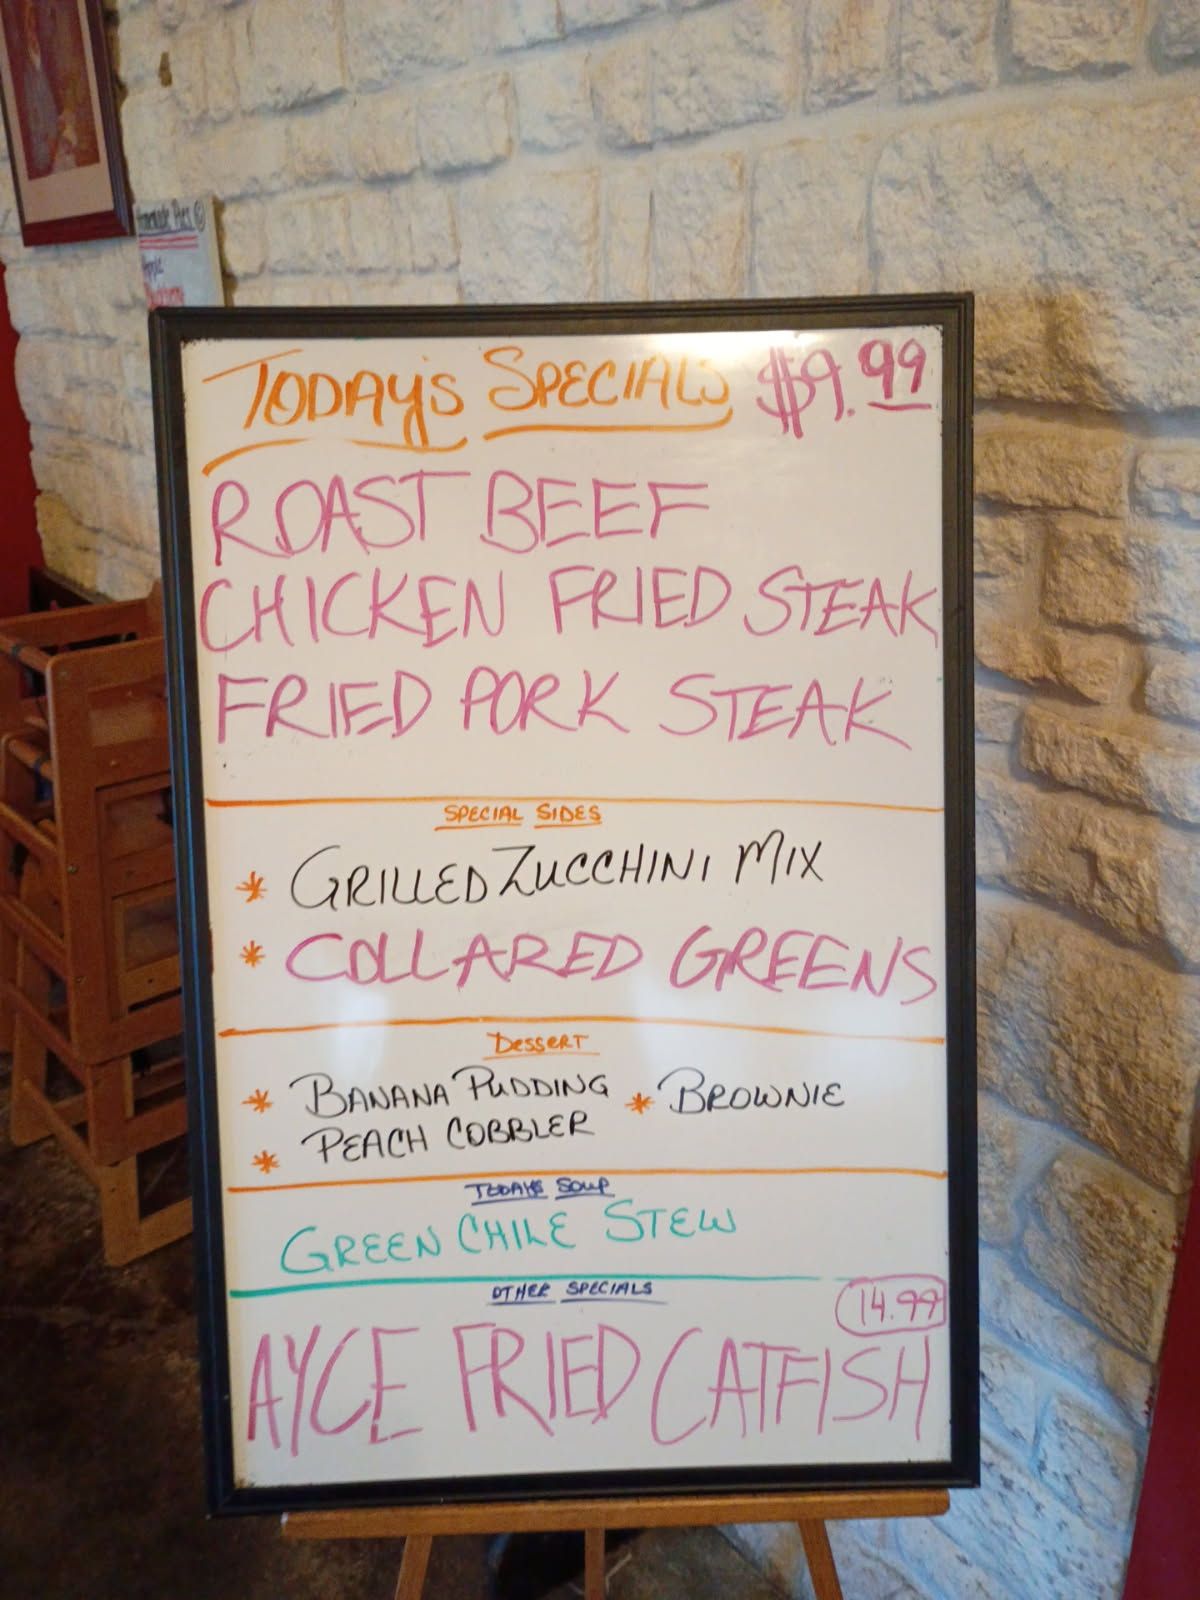 Homemade Pies
TODAY'S SPECIALS $9.99
ROAST BEEF
CHICKEN FRIED STEAK
FRIED PORK STEAK
SPECIAL SIDES
* GRILLED ZUCCHINI MIX
* COLLARED GREENS
DESSERT
* BANANA PUDDING * BROWNIE
* PEACH COBBLER
TODAY'S SOUP
GREEN CHILE STEW
OTHER SPECIALS 14.99
AYCE FRIED CATFISH